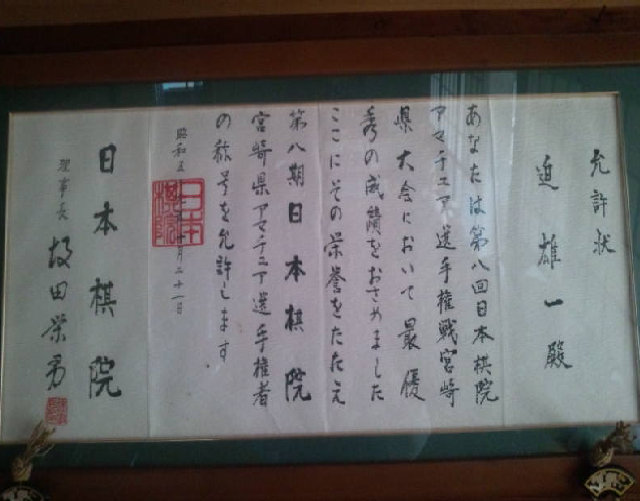 允許状
迫雄一殿
あなたは第八回日本棋院
アマチュア選手権戦宮崎
県大会において最優
秀の成績をおさめました
ここにその栄誉をたたえ
第八期日本棋院
宮崎県アマチュア選手権者
の称号を允許します.
昭和五 月二十一日
日本棋院
日本棋院
理事長 坂田栄男